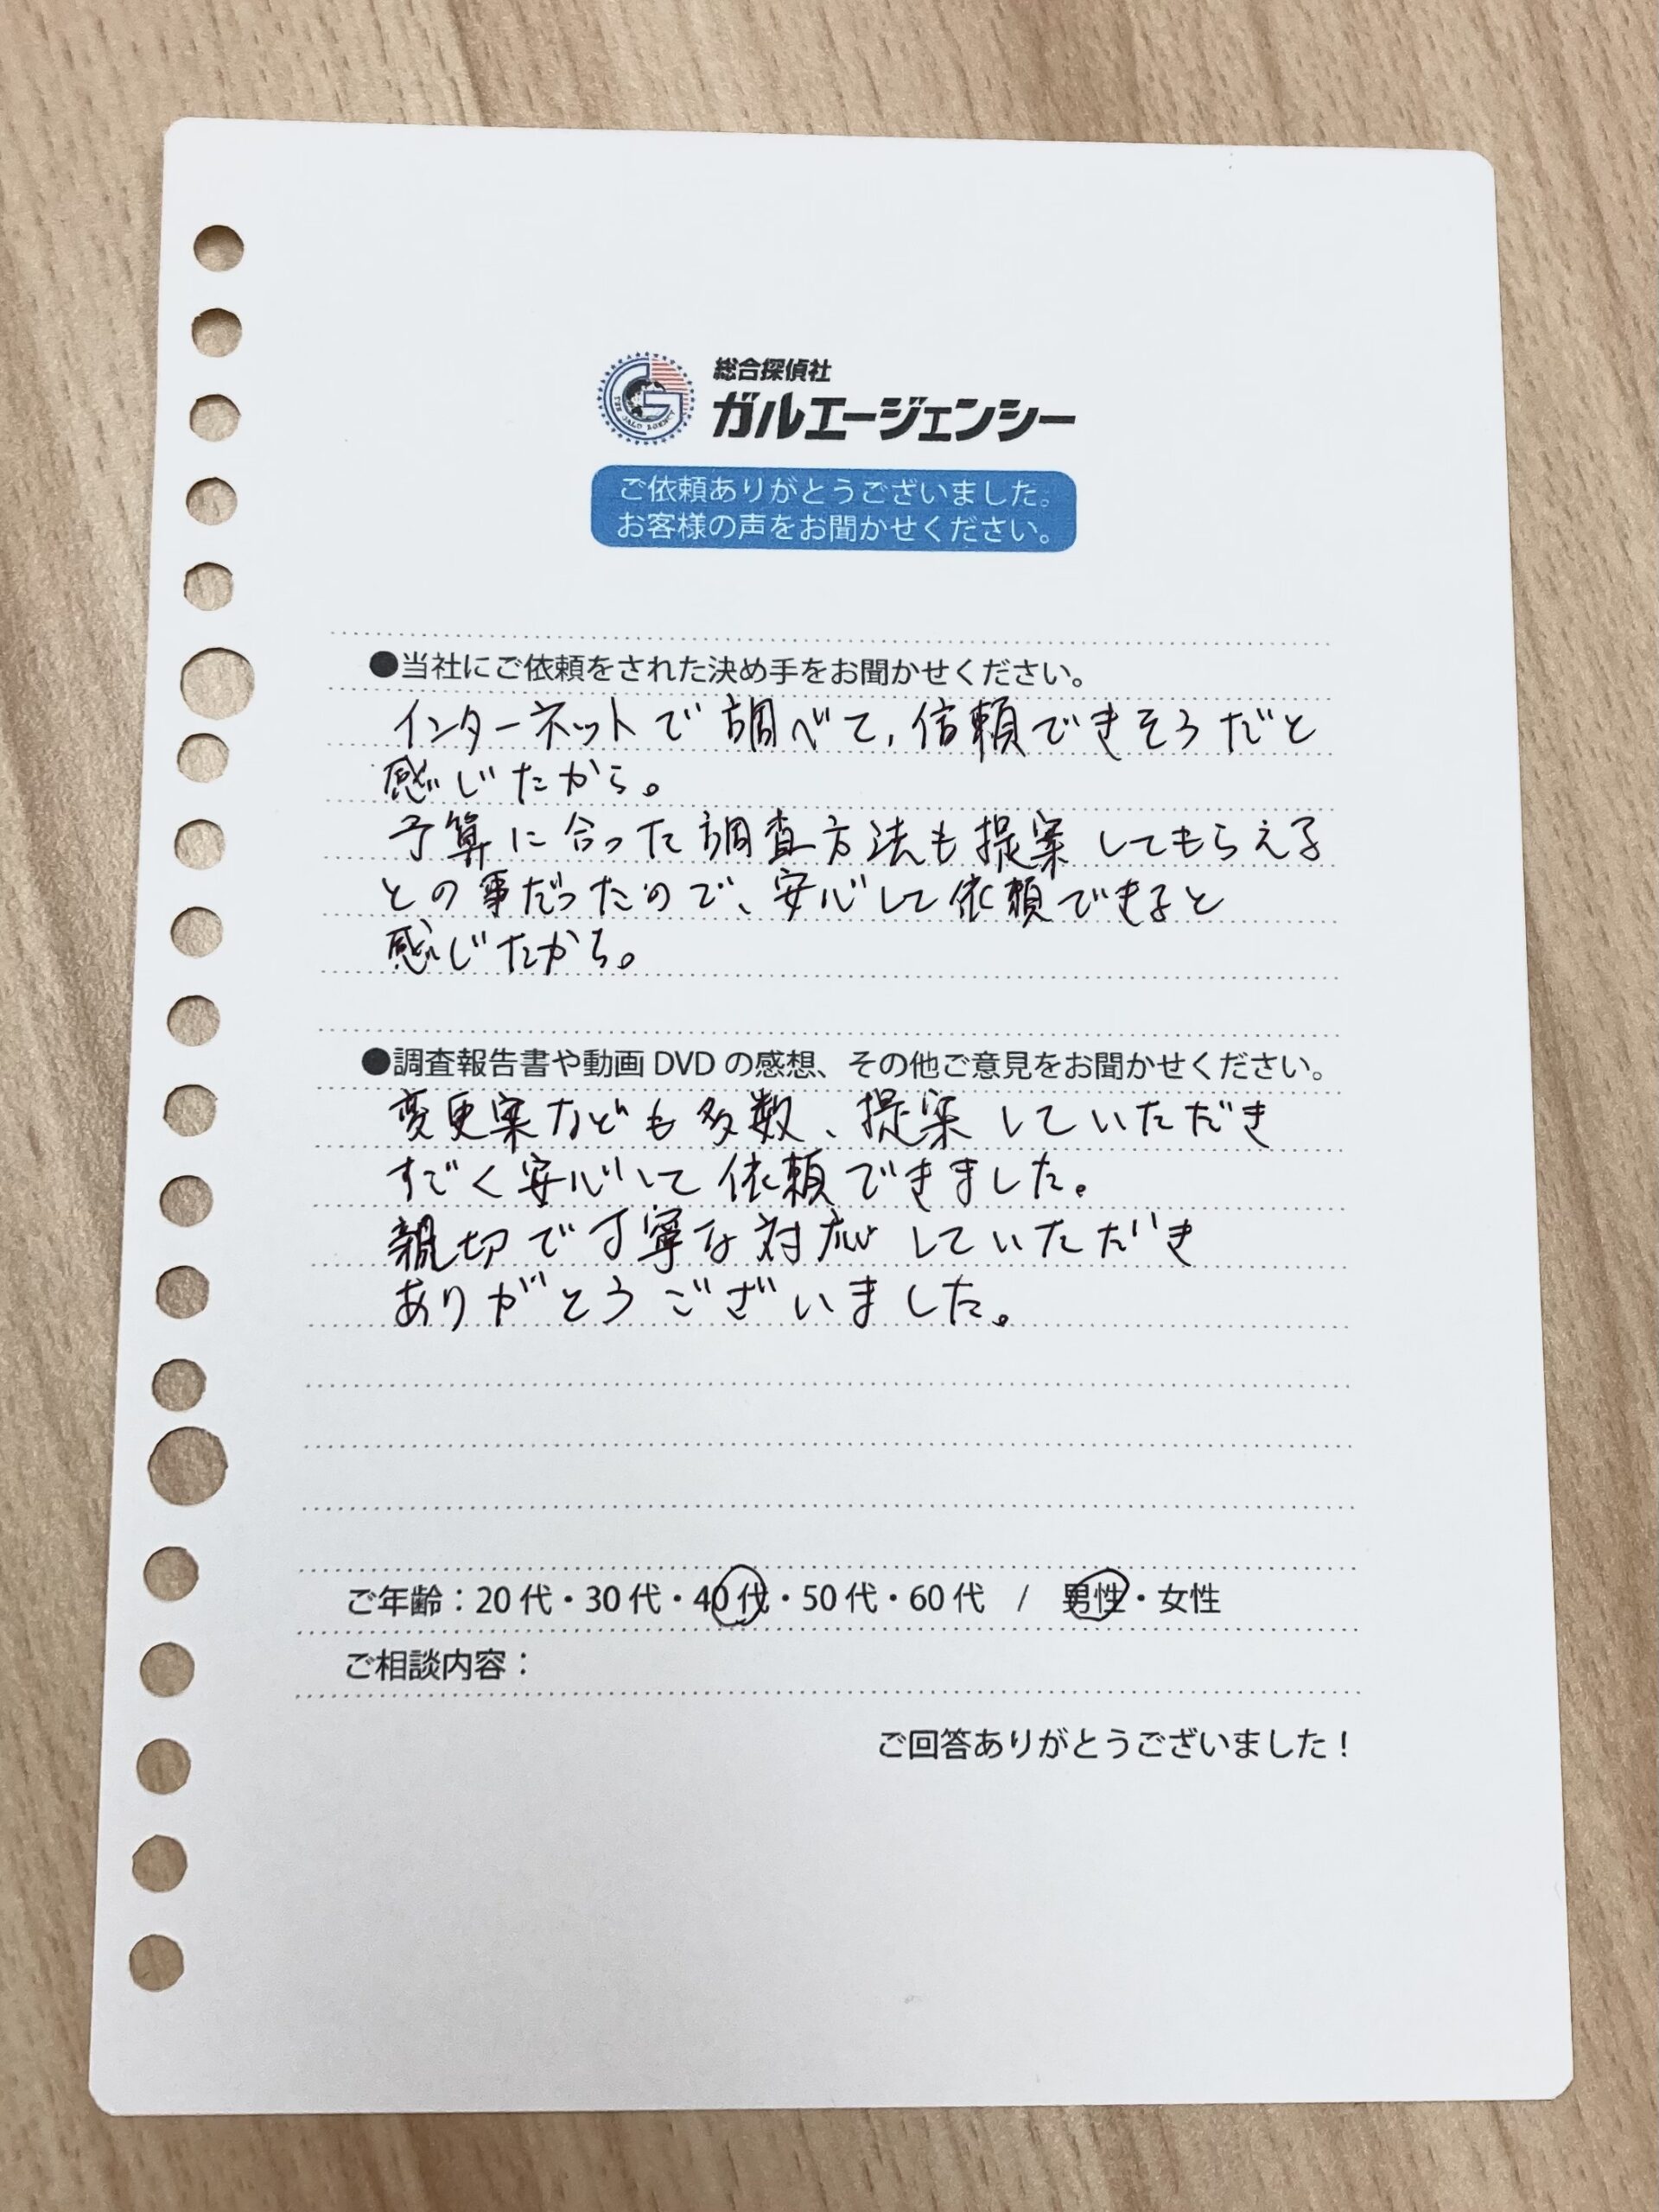 総合探偵社
ガルエージェンシー
ご依頼ありがとうございました。
お客様の声をお聞かせください。
●当社にご依頼をされた決め手をお聞かせください。
インターネットで調べて、信頼できそうだと
感じたから。
予算に合った調査方法も提案してもらえる
との事だったので、安心して依頼できると
感じたから。
●調査報告書や動画DVDの感想、その他ご意見をお聞かせください。
変更案なども多数、提案していただき
すごく安心して依頼できました。
親切で丁寧な対応していただき
ありがとうございました。
ご年齢：20代・30代・40代・50代・60代 / 男性・女性
ご相談内容：
ご回答ありがとうございました！